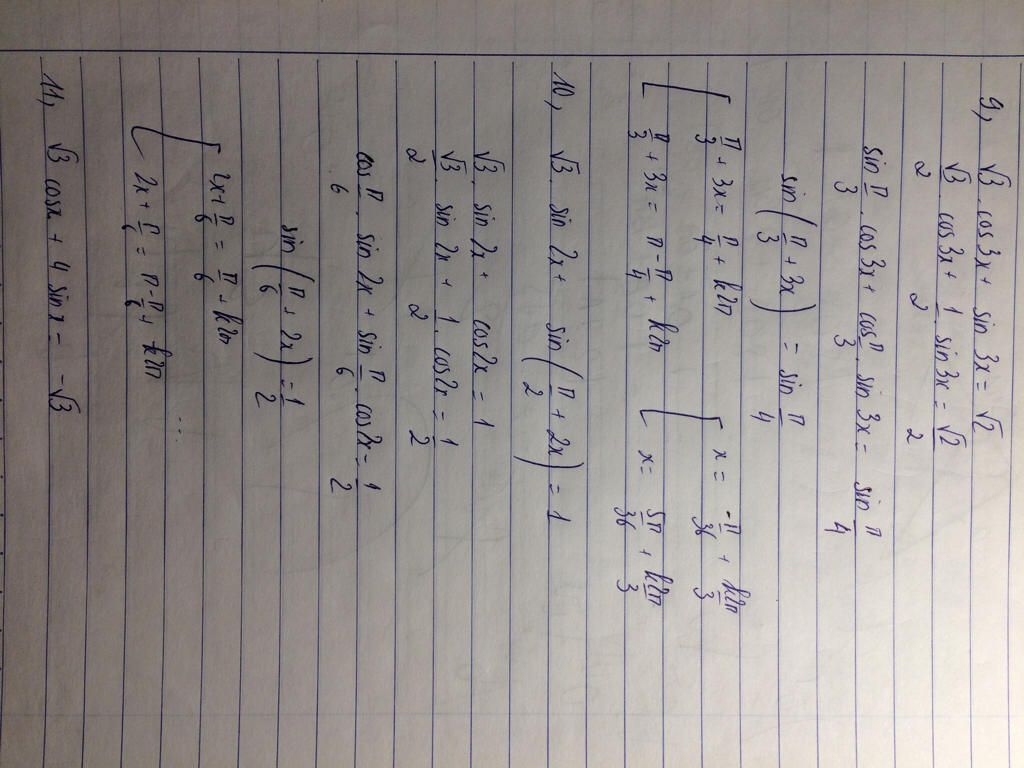 9, √3 . cos3x + sin 3x = √2
√3/2 . cos3x + 1/2 . sin3x = √2/2
sin π/3 . cos3x + cos π/3 . sin 3x = sin π/4
sin(π/3 + 3x) = sin π/4
[ π/3 + 3x = π/4 + k2π [ x = -π/36 + k2π/3
[ π/3 + 3x = π - π/4 + k2π [ x = 5π/36 + k2π/3
10, √3 . sin 2x + sin(π/2 + 2x) = 1
√3 . sin 2x + cos2x = 1
√3/2 . sin 2x + 1/2 . cos2x = 1/2
cos π/6 . sin 2x + sin π/6 . cos2x = 1/2
sin(π/6 + 2x) = 1/2
[ 2x + π/6 = π/6 + k2π
[ 2x + π/6 = π - π/6 + k2π ...
11, √3 cosx + 4 sinx = -√3